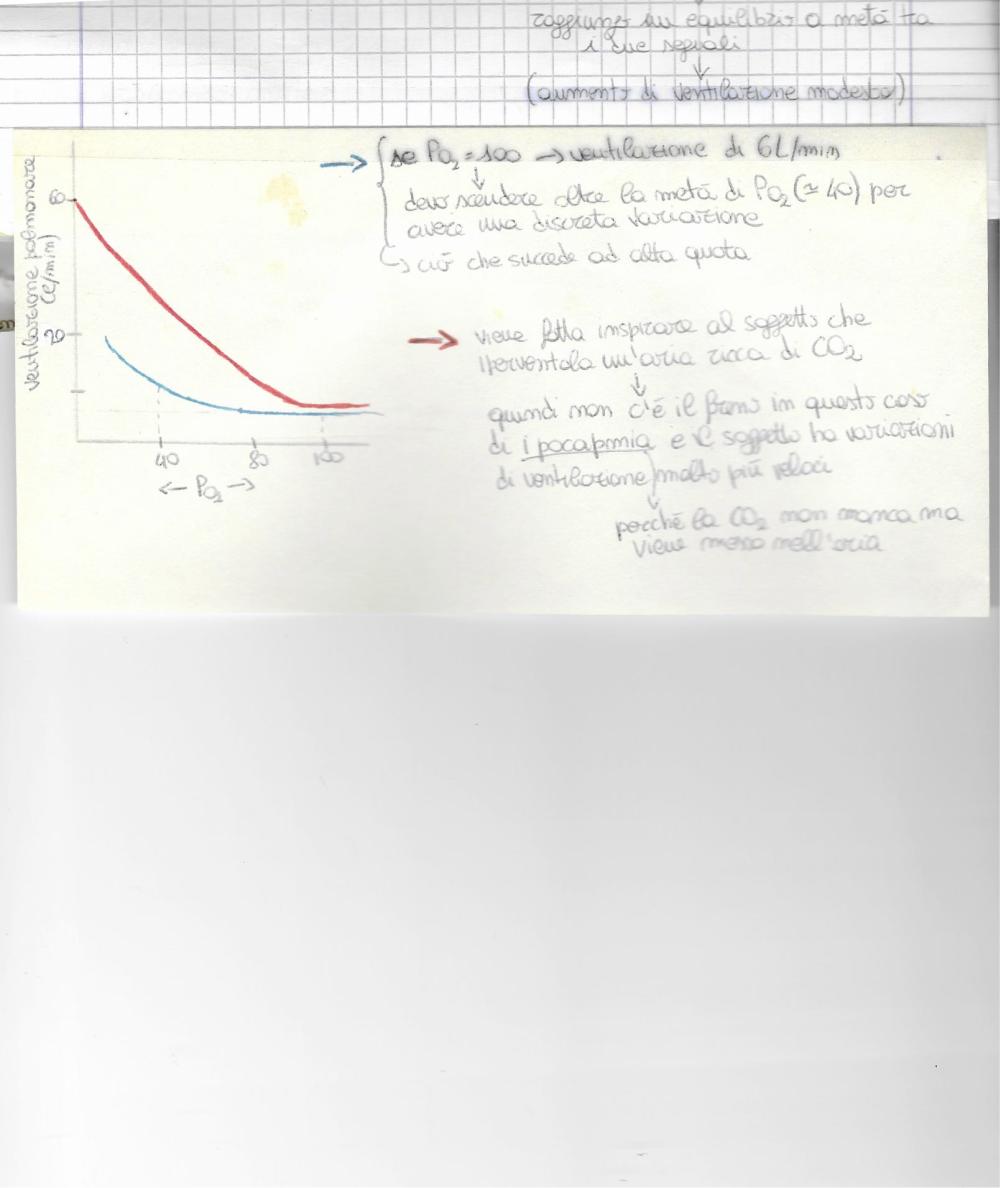 raggiunge un equilibrio a metà tra
i due segnali
↓
(aumento di ventilazione modesto)
→ se PO2 = 100 → ventilazione di 6L/min
↓
devo scendere oltre la metà di PO2 (≃ 40) per
avere una discreta variazione
↳ ciò che succede ad alta quota
ventilazione polmonare
(l/min)
60
20
40 80 100
← PO2 →
→ viene fatta inspirare al soggetto che
iperventola un'aria ricca di CO2
↓
quindi non c'è il freno in questo caso
di ipocapmia e il soggetto ha variazioni
di ventilazione molto più veloci
↓
perché la CO2 non manca ma
viene messo nell'aria